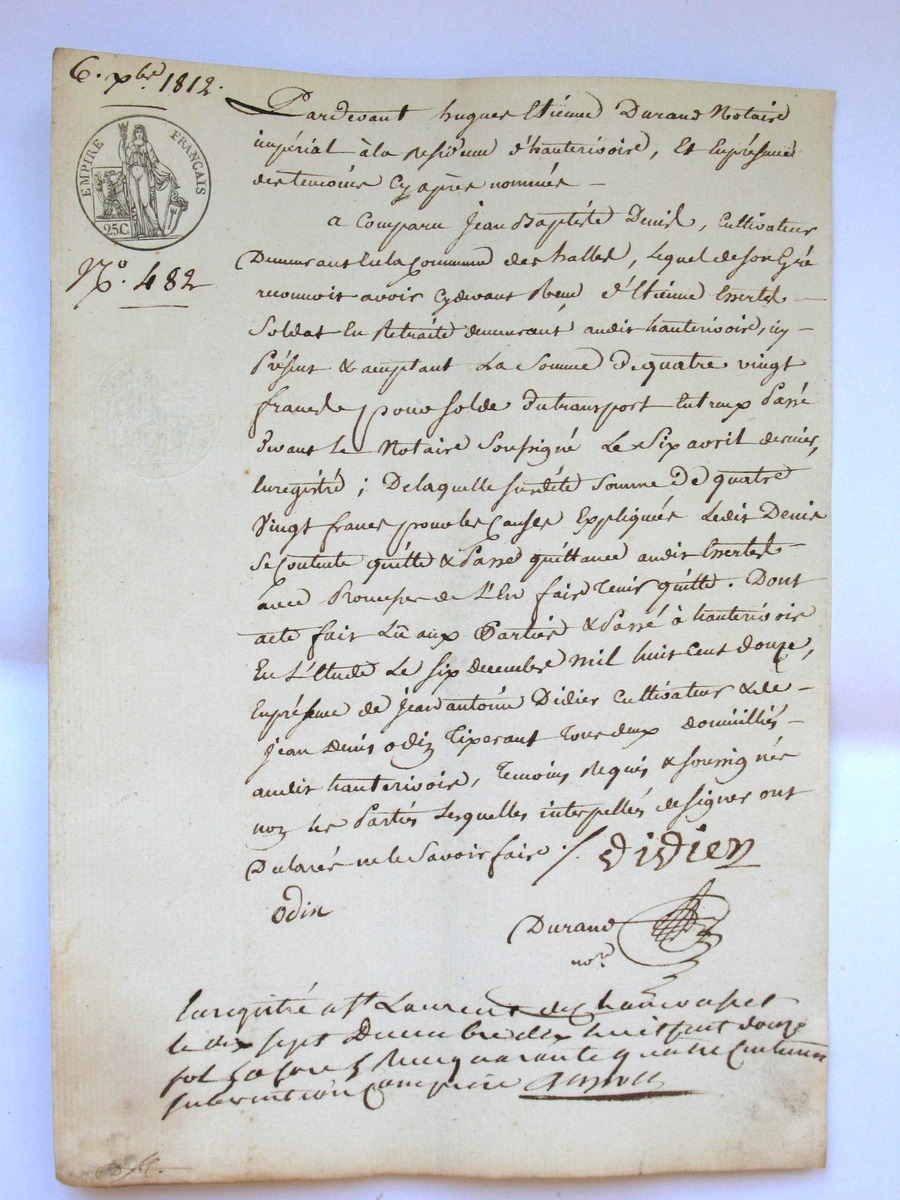 6. xbre 1812.
EMPIRE FRANÇAIS
25C.
No. 482
Pardevant hugues Etienne Durand Notaire
impérial à la Residence d'hauterivoire, Et Enprésence
des temoins Cy après nommés —
a Comparu Jean Baptiste Denis, Cultivateur
Demeurant En la Commune des halles, lequel de son Gré
reconnoit avoir Cydevant Reçu d'Etienne —
Soldat En Retraite demeurant audit hauterivoire, icy —
Présent & acceptant La Somme De quatre vingt
francs pour solde Du transport Entreux Passé
Devant le Notaire Soussigné Le Six avril dernier,
Enregistré ; De laquelle susdite Somme De quatre
Vingt francs pour les Causes Expliquées Ledit Denis
Se Contente quitte & Passe quittance audit —
avec Promesse de L'En faire Tenir quitte. Dont
acte fait Lû aux Parties & Passé à hauterivoire
En L'Etude Le six decembre mil huit Cent douze,
Enprésence de jean antoine Didier Cultivateur & de —
jean Denis odin Tixerant Tous deux domiciliés —
audit hauterivoire, Temoins Requis & soussignés
non les Parties Lesquelles interpellés de signer ont
Declarés ne le Savoir faire ./. Didier
odin
Durand
nore
Enregistré a St Laurent de Chamousset
le dix sept Decembre dix huit cent douze
fol quarante quatre Centimes
subvention Comprise